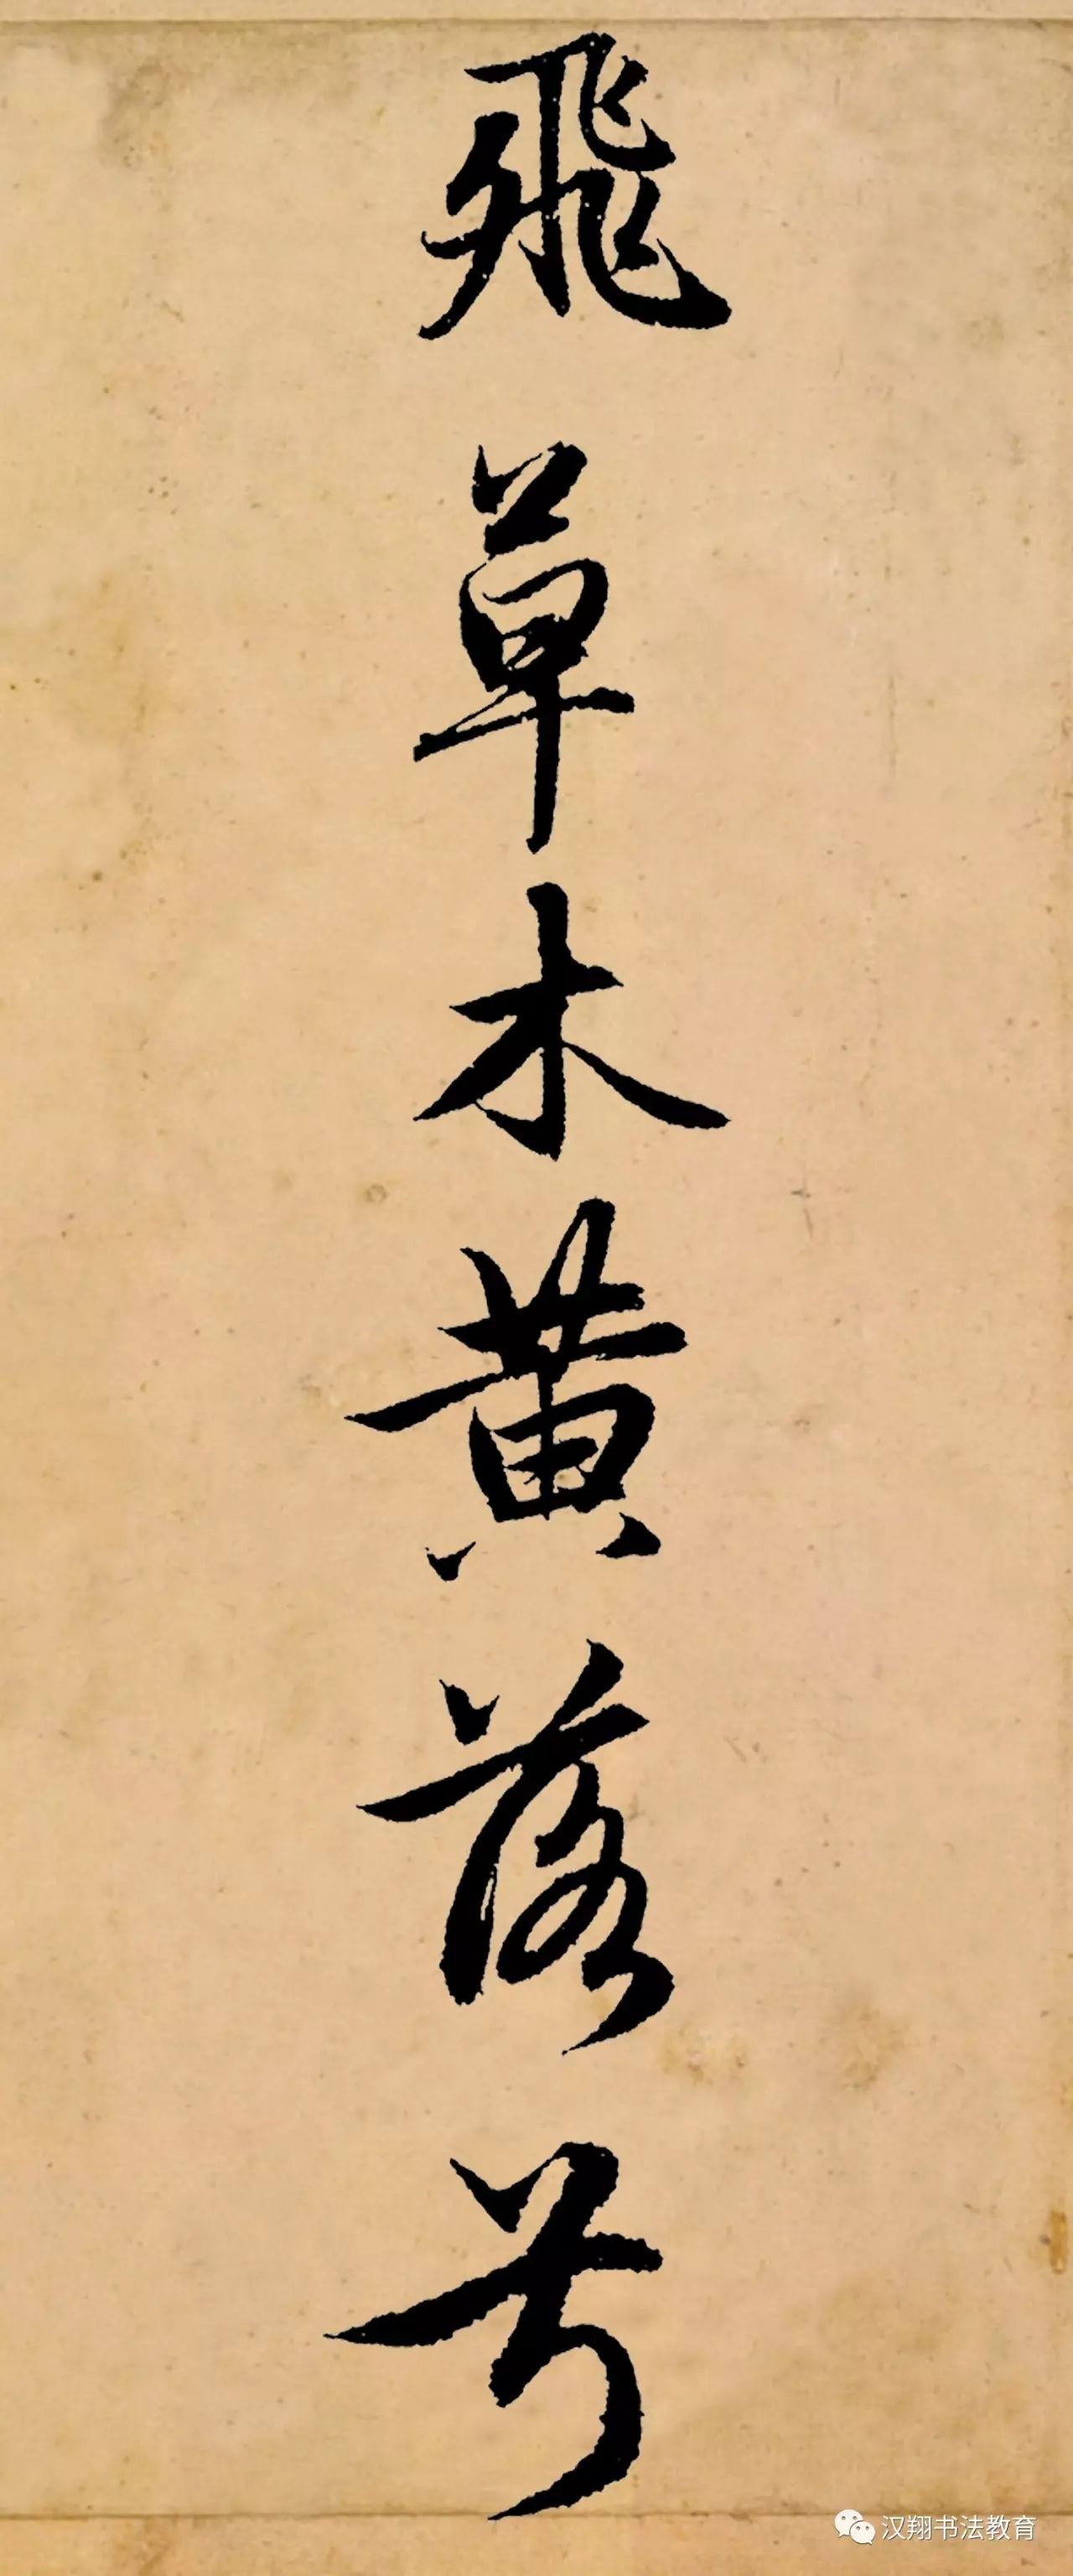 飛草木黄落兮
汉翔书法教育